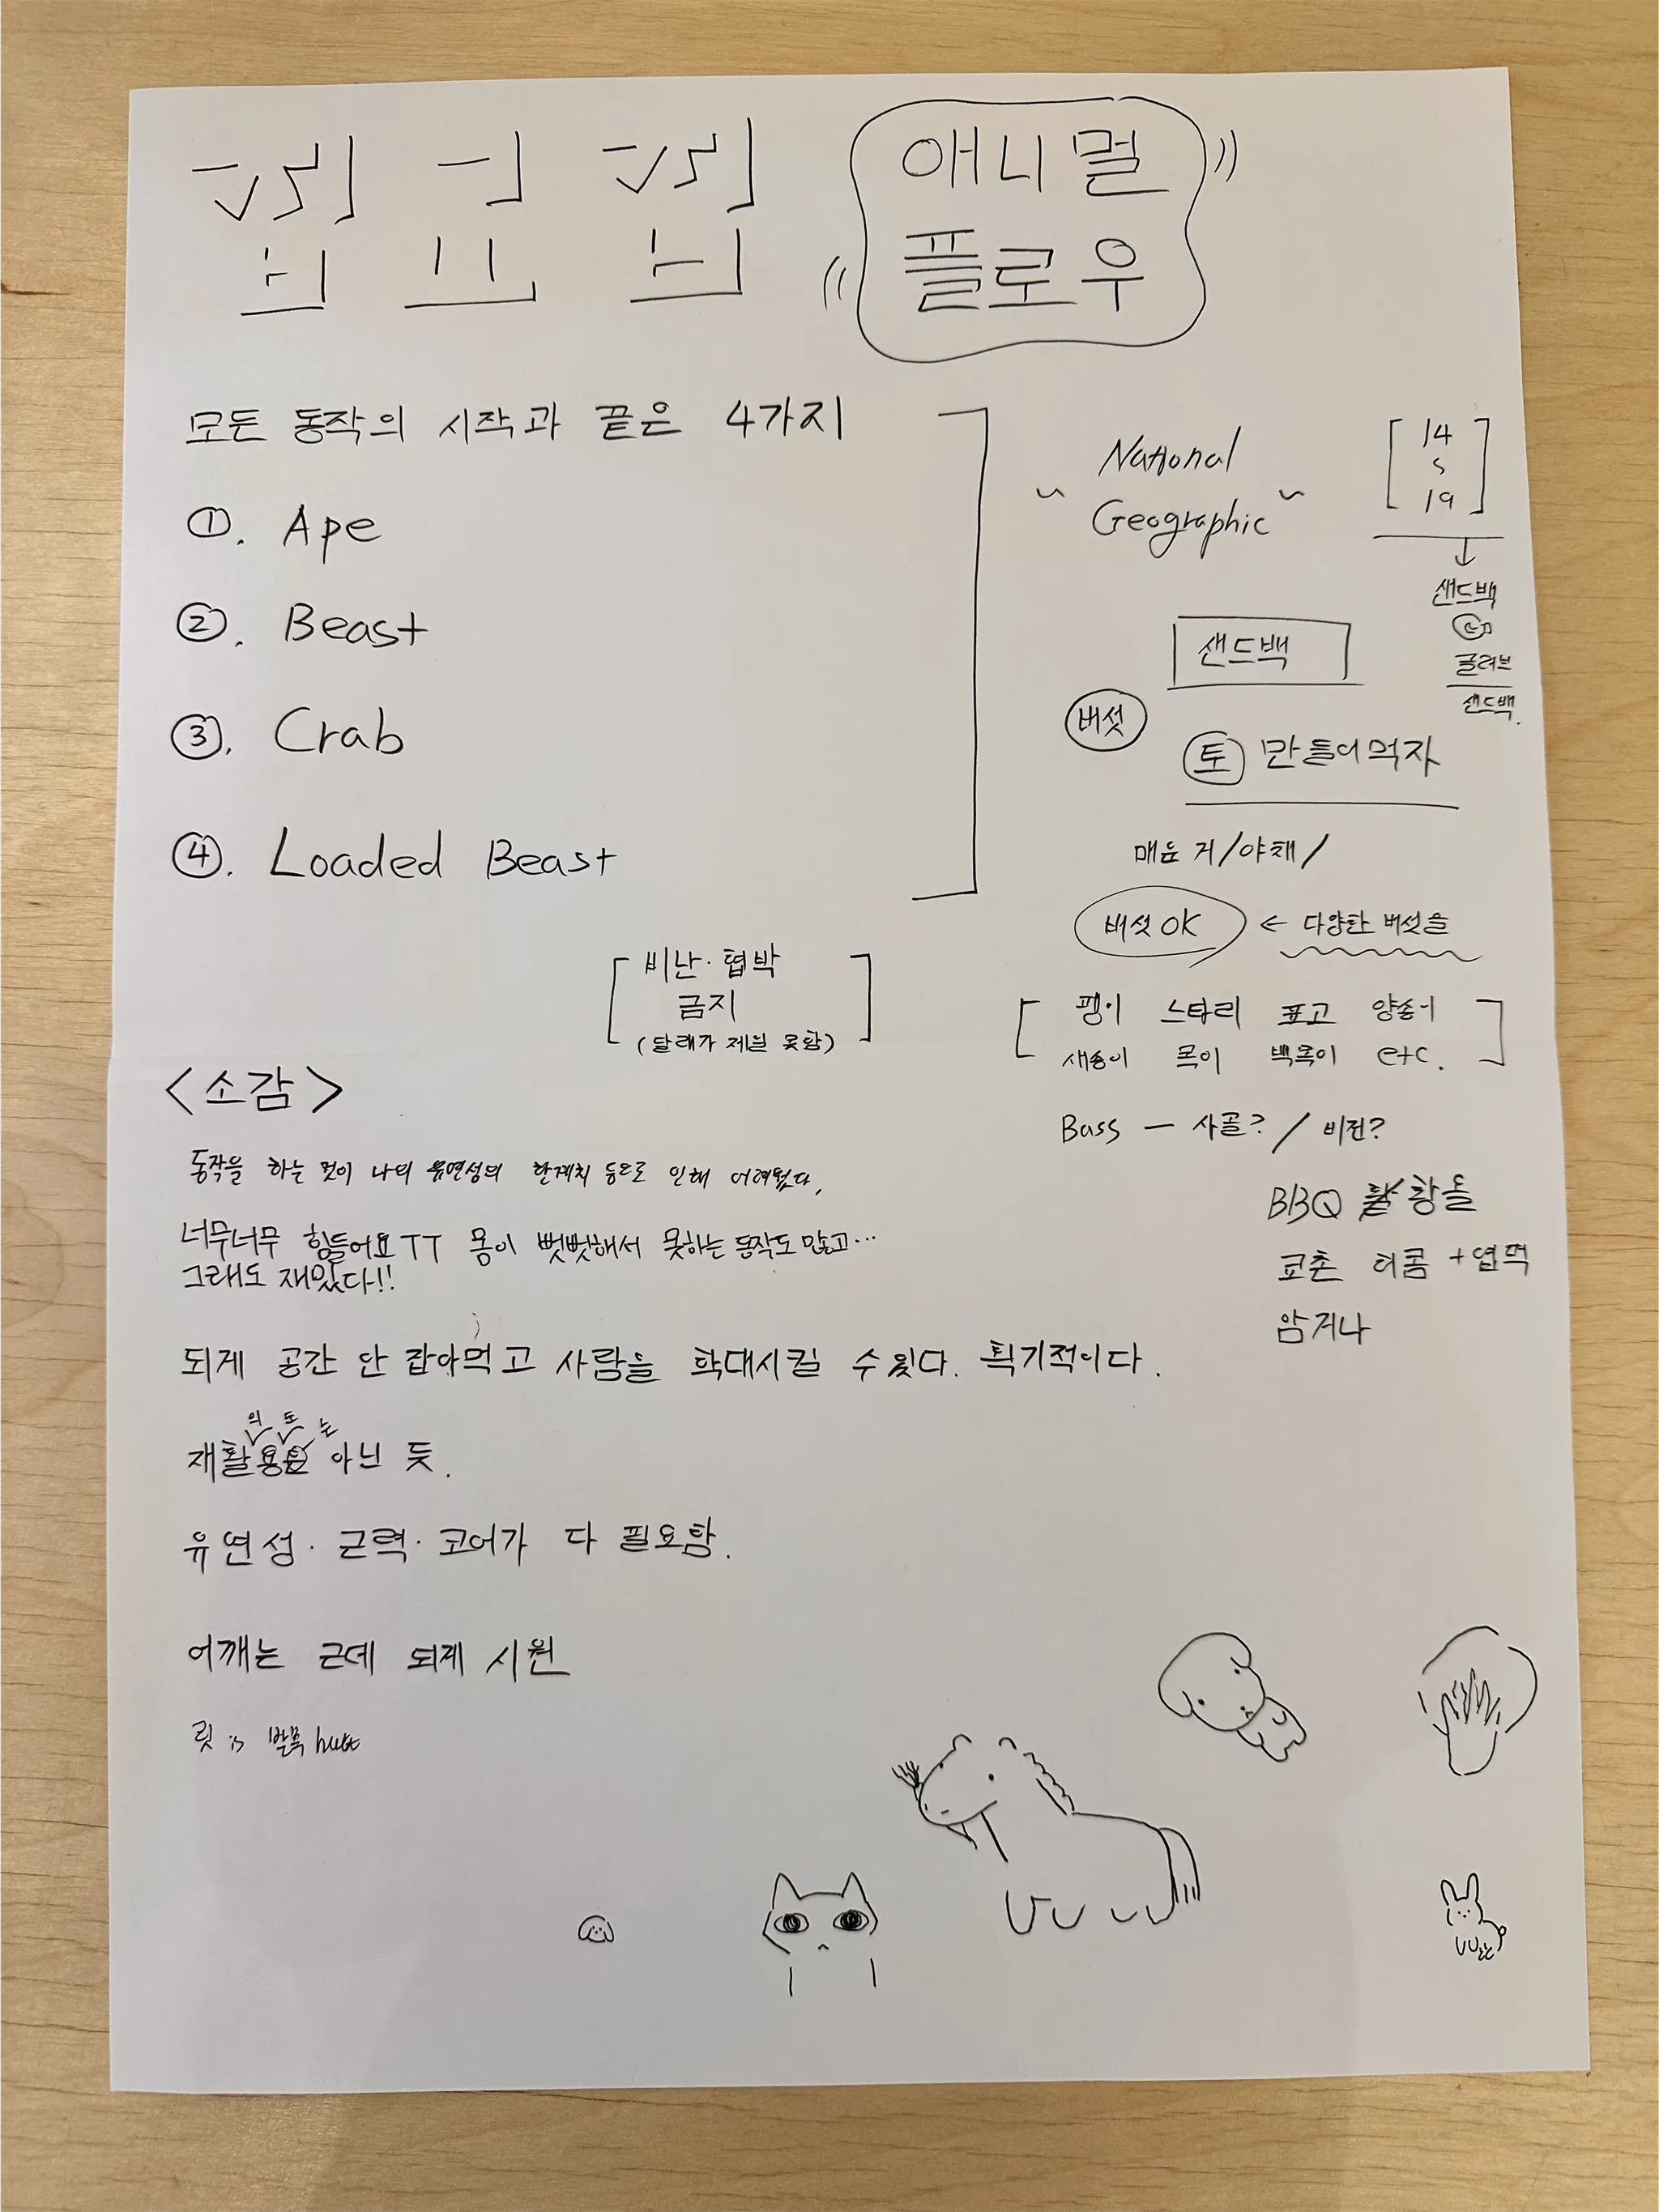 애니멀
플로우
모든 동작의 시작과 끝은 4가지
①. Ape
②. Beast
③. Crab
④. Loaded Beast
비난·협박
금지
(달래가 제일 못함)
National
Geographic
14
19
샌드백
글러브
샌드백.
샌드백
버섯
토 만들어먹자
매운 거/야채/
버섯 OK ← 다양한 버섯을
팽이 느타리 표고 양송이
새송이 목이 백목이 etc.
Bass — 사골? / 비건?
BBQ 황올
교촌 허콤 +엽떡
암거나
<소감>
동작을 하는 것이 나의 유연성의 한계치 등으로 인해 어려웠다.
너무너무 힘들어요TT 몸이 뻣뻣해서 못하는 동작도 많고…
그래도 재밌다!!
되게 공간 안 잡아먹고 사람을 학대시킬 수있다. 획기적이다.
의 도 는
재활 아닌 듯.
유연성·근력·코어가 다 필요함.
어깨는 근데 되게 시원
is 발목